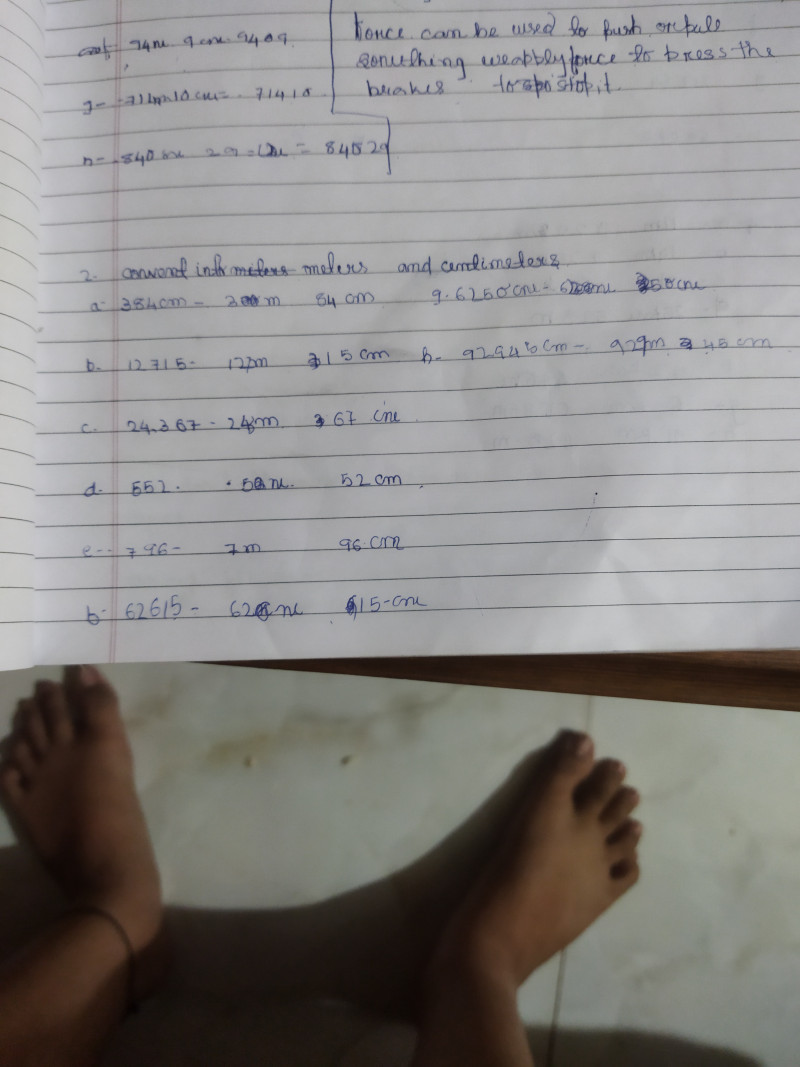 94m 9cm 9409
g- 714m10cm = 71410
n= 840m 29 = 84029
Force can be used to push or pull
something we apply force to press the
brakes to stop it.
2. convert into meters and centimeters
a- 384cm - 3m 84 cm
b- 12715- 127m 15 cm
c. 24.367 - 243m 67 cm
d. 552. 5m. 52 cm.
e-- 796- 7m 96 cm
b- 62615 - 626m 15-cm
g. 6250cm- 62m 50cm
h- 92945cm- 929m 45 cm